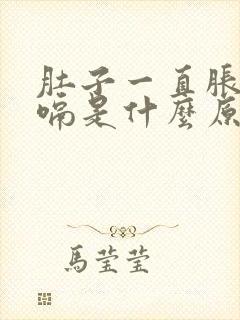 肚子一直脹
嗝是什麼原
馬瑩瑩